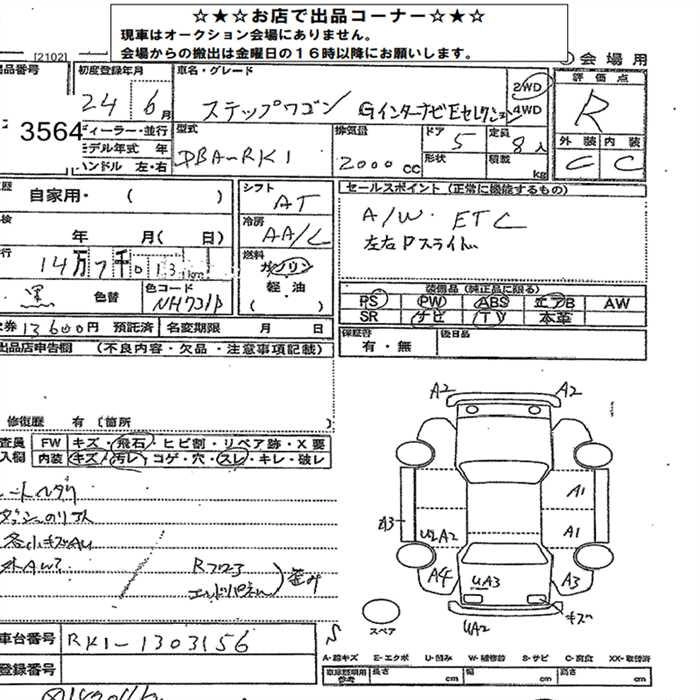 ☆★☆お店で出品コーナー☆★☆
現車はオークション会場にありません。
会場からの搬出は金曜日の16時以降にお願いします。
[2102]
会場用
出品番号
3564
初度登録年月
24 6月
車名・グレード
ステップワゴン Gインターナビ Eセレクション
2WD
4WD
評価点
R
ディーラー・並行
モデル年式 年
ハンドル 左・右
型式
DBA-RK1
排気量
2000 CC
ドア
5
形状
定員
8人
積載
kg
外装 内装
C C
歴
自家用・ ( )
シフト
AT
冷房
AA/C
燃料
ガソリン
軽・油
( )
検
年 月( 日)
行
14万7千013km
黒
色替
色コード
NH731P
セールスポイント (正常に機能するもの)
A/W ETC
左右Pスライド
装備品 (純正品に限る)
PS PW ABS エアB AW
SR ナビ TV 本革
券 13600円 預託済
名変期限 月 日
保証書
有・無
後日品
出品店申告欄 (不良内容・欠品・注意事項記載)
修復歴 有 〔箇所 〕
査員
記入欄
FW キズ・飛石・ヒビ割・リペア跡・X要
内装 キズ・汚レ・コゲ・穴・スレ・キレ・破レ
Rフロア
エンドパネル
歪み
車台番号
RK1-1303156
登録番号
A2 A2
A1
A3
U2A2
A1
A4
UA3
A3
キズ
UA2
スペア
A-線キズ E-エクボ U-凹み W-補修跡 S-サビ C-腐食 XX-取替済
車庫証明用参考
長さ cm
幅 cm
高さ cm